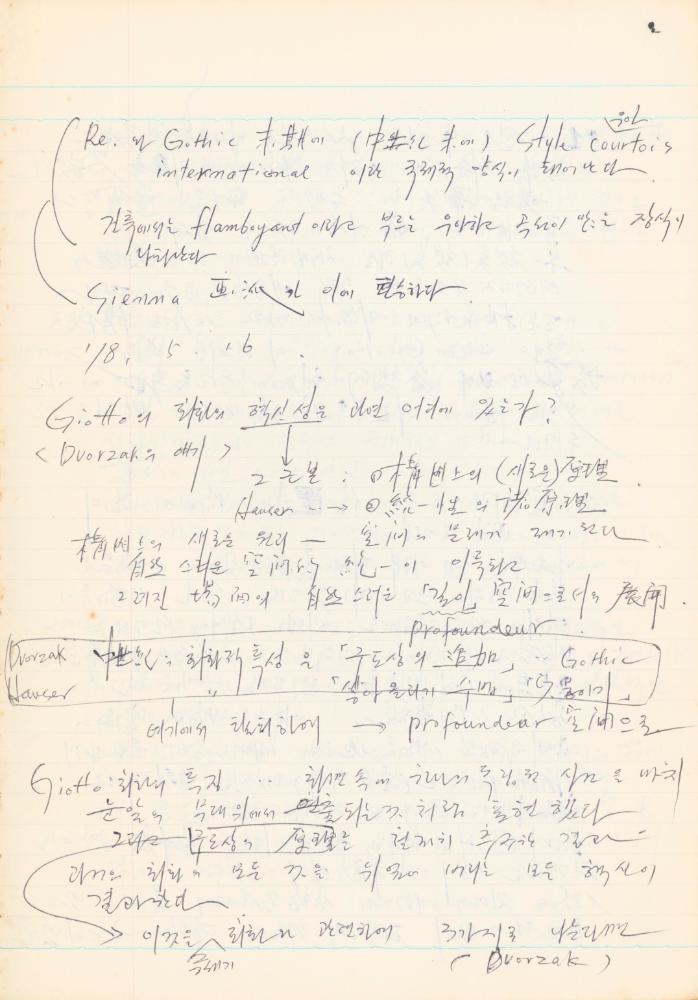 우아
Re. 와 Gothic 末期에 (中世紀 末에) Style courtois
international 이란 국제적 양식이 태어난다
건축에서는 flamboyant 이라고 부르는 우아하고 곡선이 많은 장식이
나타난다
Sienna 파가 이에 편승하다
18, 5. 16.
Giotto의 회화의 혁신성은 과연 어디에 있는가?
< Dvorzak의 얘기 >
그 근본 : ① 構図上의 (새로운) 原理
Hauser → ② 統一性의 諸原理
構図上의 새로운 원리 — 空间의 문제가 제기된다
自然스러운 空间的 統一이 이룩되고
그려진 場面의 自然스러운 「깊이」 空间으로서의 展開.
profoundeur
Dvorzak 中世紀의 회화적 특성은 「구도상의 追加」 ·· Gothic
Hauser 〃 「쌓아올리기 수법」
여기에서 탈피하여 → profoundeur 空间으로
Giotto 회화의 특징 ··· 화면속에 하나의 독립된 사건을 마치
눈앞의 무대위에서 연출되는것처럼 표현했다
그리고 구도상의 原理를 철저히 추구한 결과
과거의 회화의 모든 것을 뒤엎어 버리는 모든 혁신이
결과한다
→ 이것을 회화와 관련하여 3가지로 나눈다면
(Dvorzak)